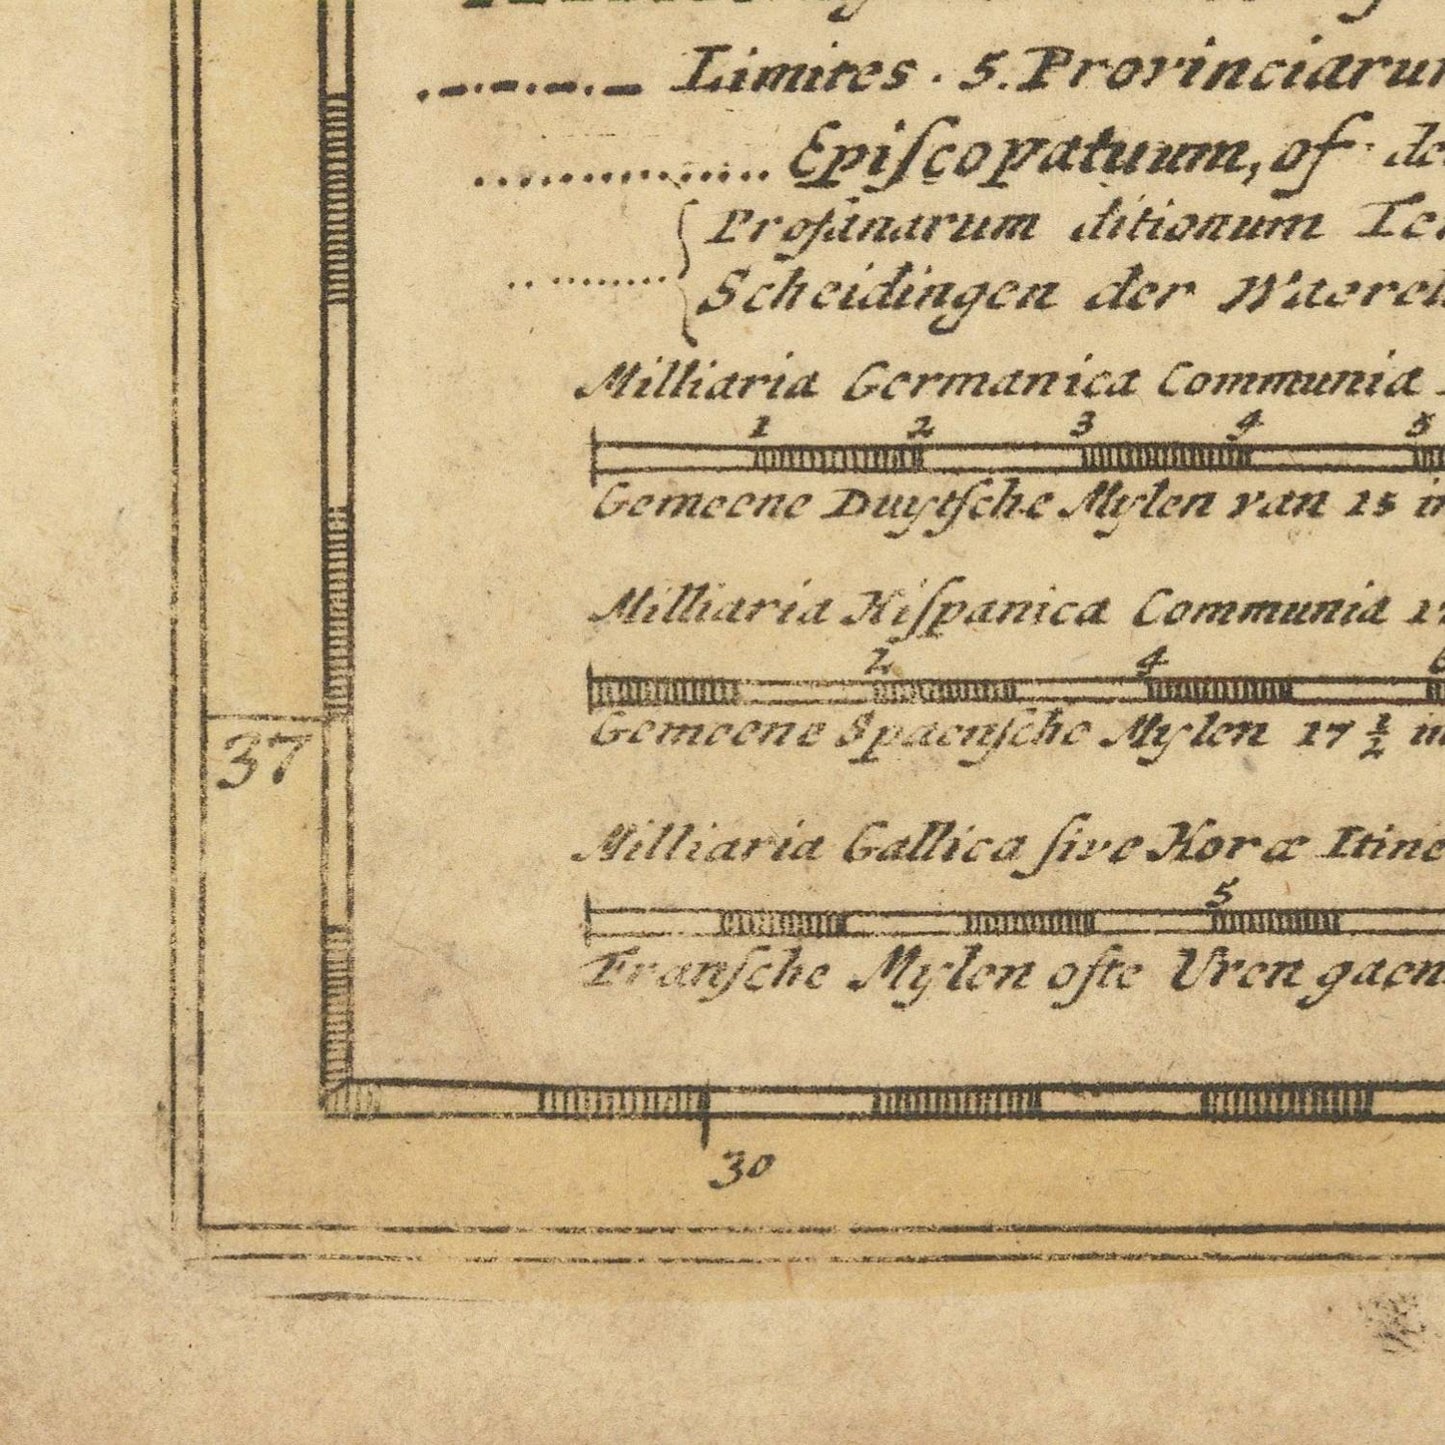 Limites. 5. Provinciarum
Epiſcopatuum, of de
Profanarum ditionum Ter
Scheidingen der Waerel
Milliaria Germanica Communia
1 2 3 4 5
Gemeene Duytſche Mylen van 15 in
Milliaria Hiſpanica Communia 17
2 4 6
Gemeene Spaenſche Mylen 17 1/2 in
37
Milliaria Gallica ſive Horæ Itine
5
Franſche Mylen ofte Uren gaens
30